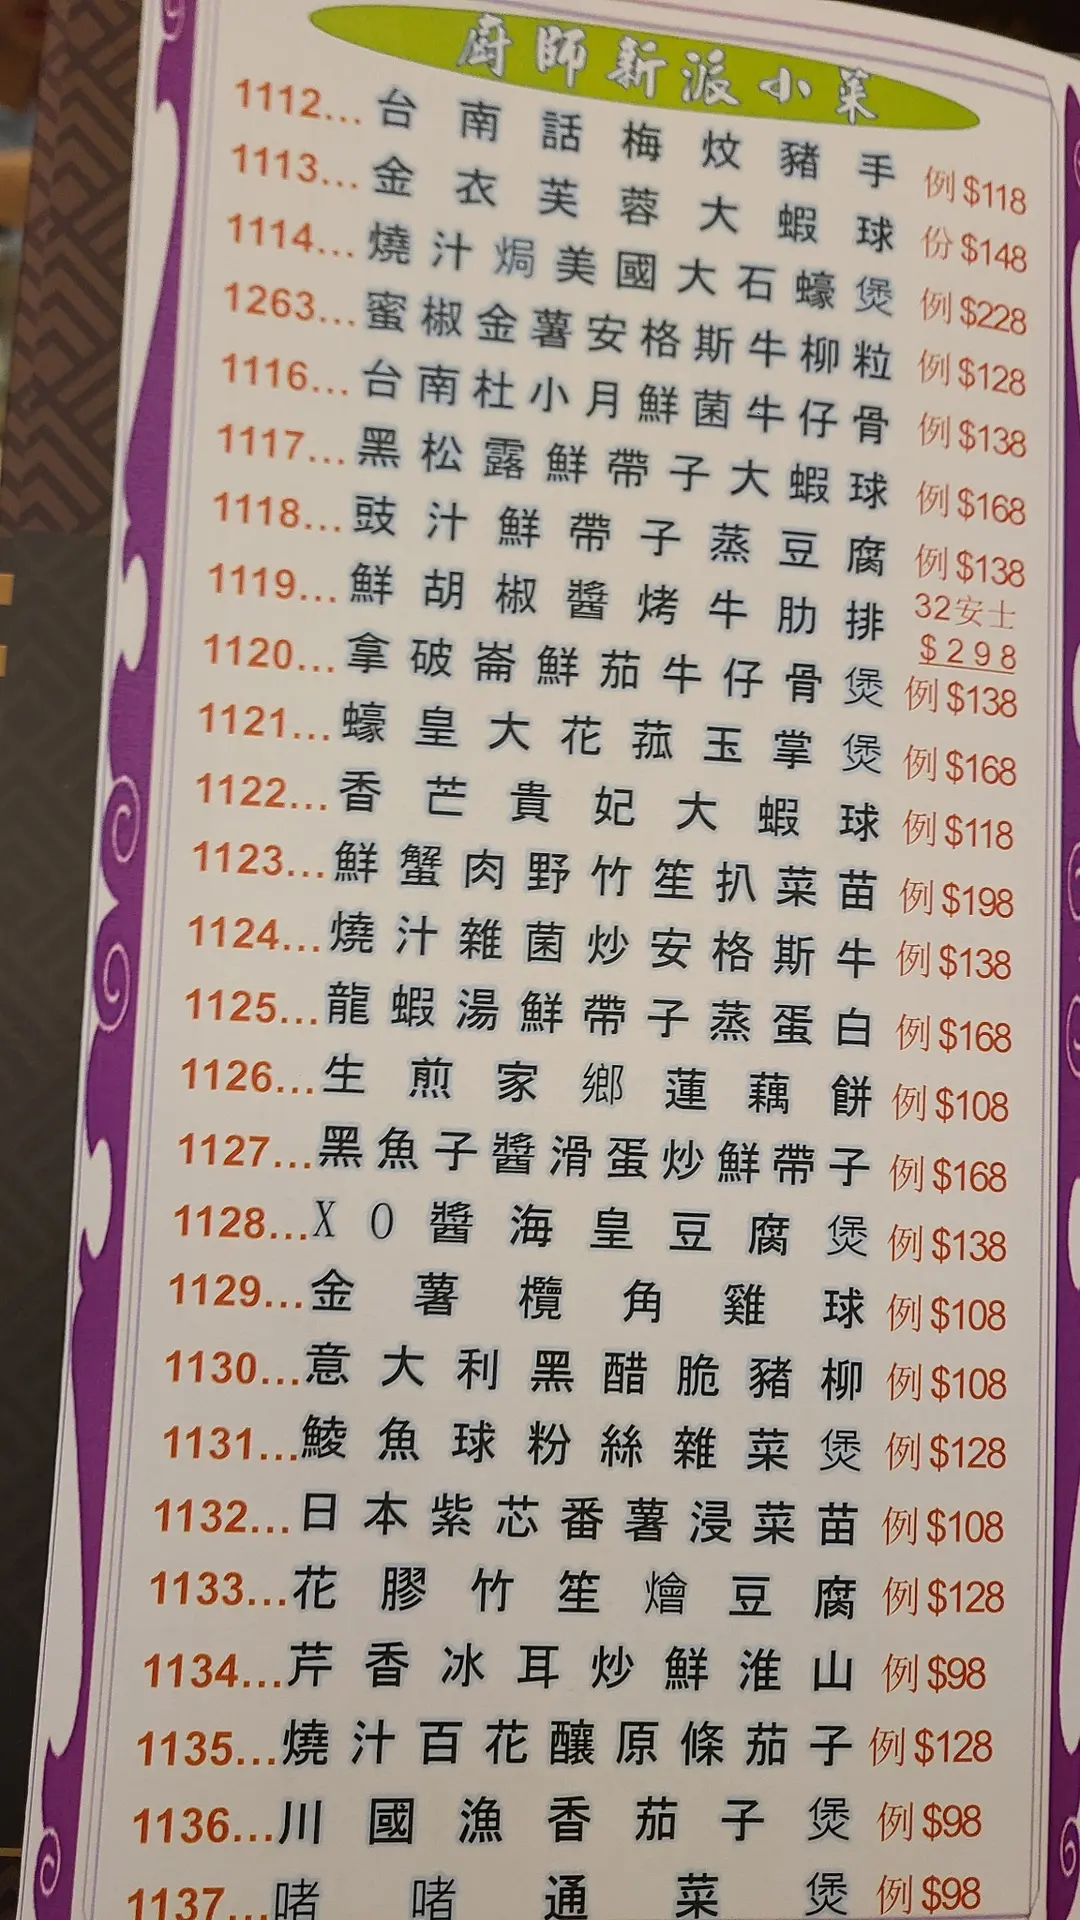 廚師新派小菜
1112...台南話梅炆豬手 例$118
1113...金衣芙蓉大蝦球 份$148
1114...燒汁焗美國大石蠔煲 例$228
1263...蜜椒金薯安格斯牛柳粒 例$128
1116...台南杜小月鮮菌牛仔骨 例$138
1117...黑松露鮮帶子大蝦球 例$168
1118...豉汁鮮帶子蒸豆腐 例$138
1119...鮮胡椒醬烤牛肋排 32安士 $298
1120...拿破崙鮮茄牛仔骨煲 例$138
1121...蠔皇大花菰玉掌煲 例$168
1122...香芒貴妃大蝦球 例$118
1123...鮮蟹肉野竹笙扒菜苗 例$198
1124...燒汁雜菌炒安格斯牛 例$138
1125...龍蝦湯鮮帶子蒸蛋白 例$168
1126...生煎家鄉蓮藕餅 例$108
1127...黑魚子醬滑蛋炒鮮帶子 例$168
1128...XO醬海皇豆腐煲 例$138
1129...金薯欖角雞球 例$108
1130...意大利黑醋脆豬柳 例$108
1131...鯪魚球粉絲雜菜煲 例$128
1132...日本紫芯番薯浸菜苗 例$108
1133...花膠竹笙燴豆腐 例$128
1134...芹香冰耳炒鮮淮山 例$98
1135...燒汁百花釀原條茄子 例$128
1136...川國漁香茄子煲 例$98
1137...啫啫通菜煲 例$98